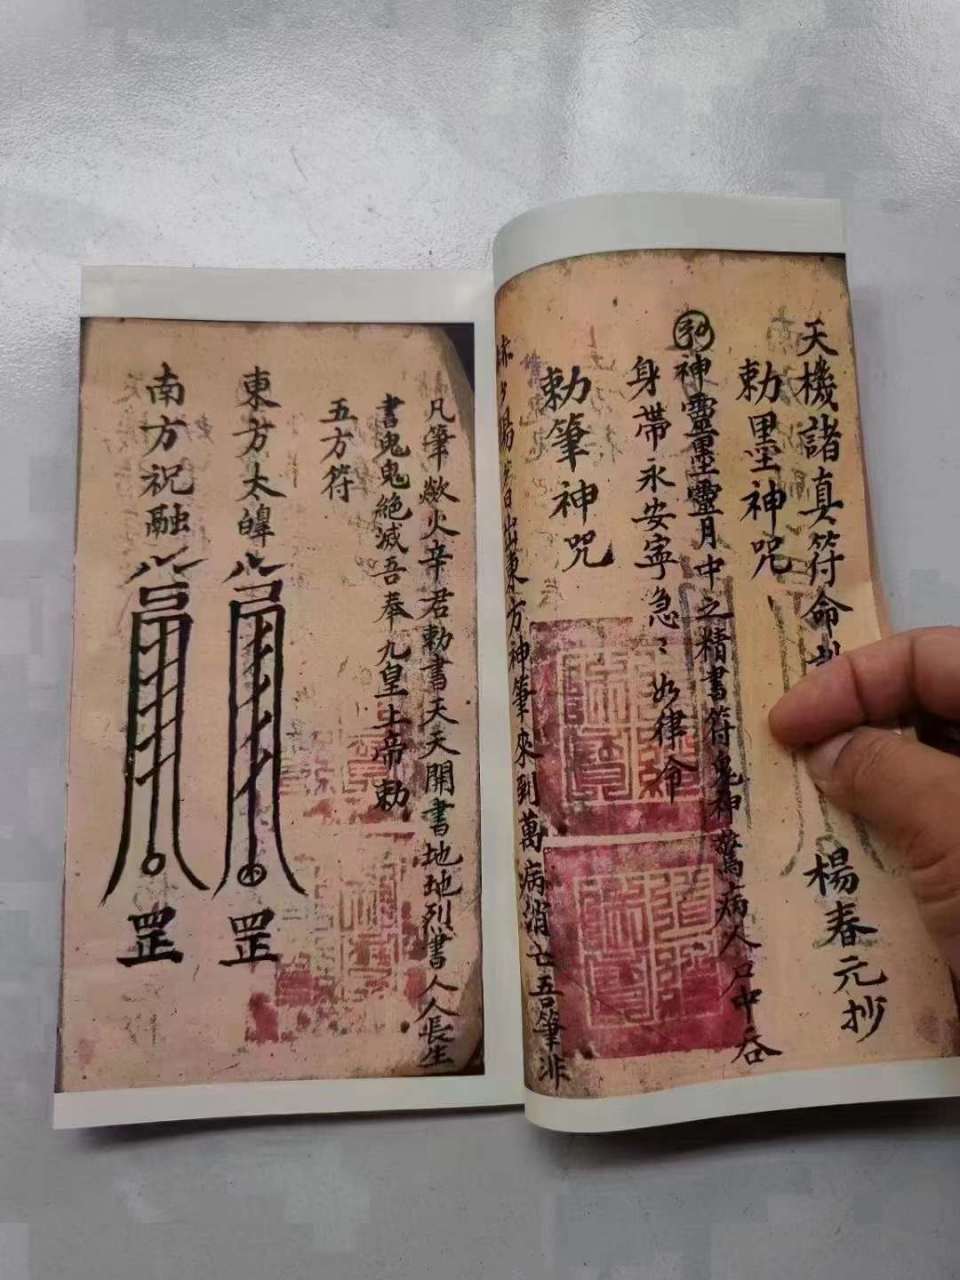 天機諸真符命
楊春元抄
勅墨神咒
神靈墨靈月中之精書符鬼神驚病人口中吞
身帶永安寧急〻如律令
勅筆神咒
日出東方神筆來到萬病消亡吾筆非
凡筆欻火辛君勅書天天開書地地列書人人長生
書鬼鬼絕滅吾奉九皇上帝勅
五方符
東方太皞
罡
南方祝融
罡